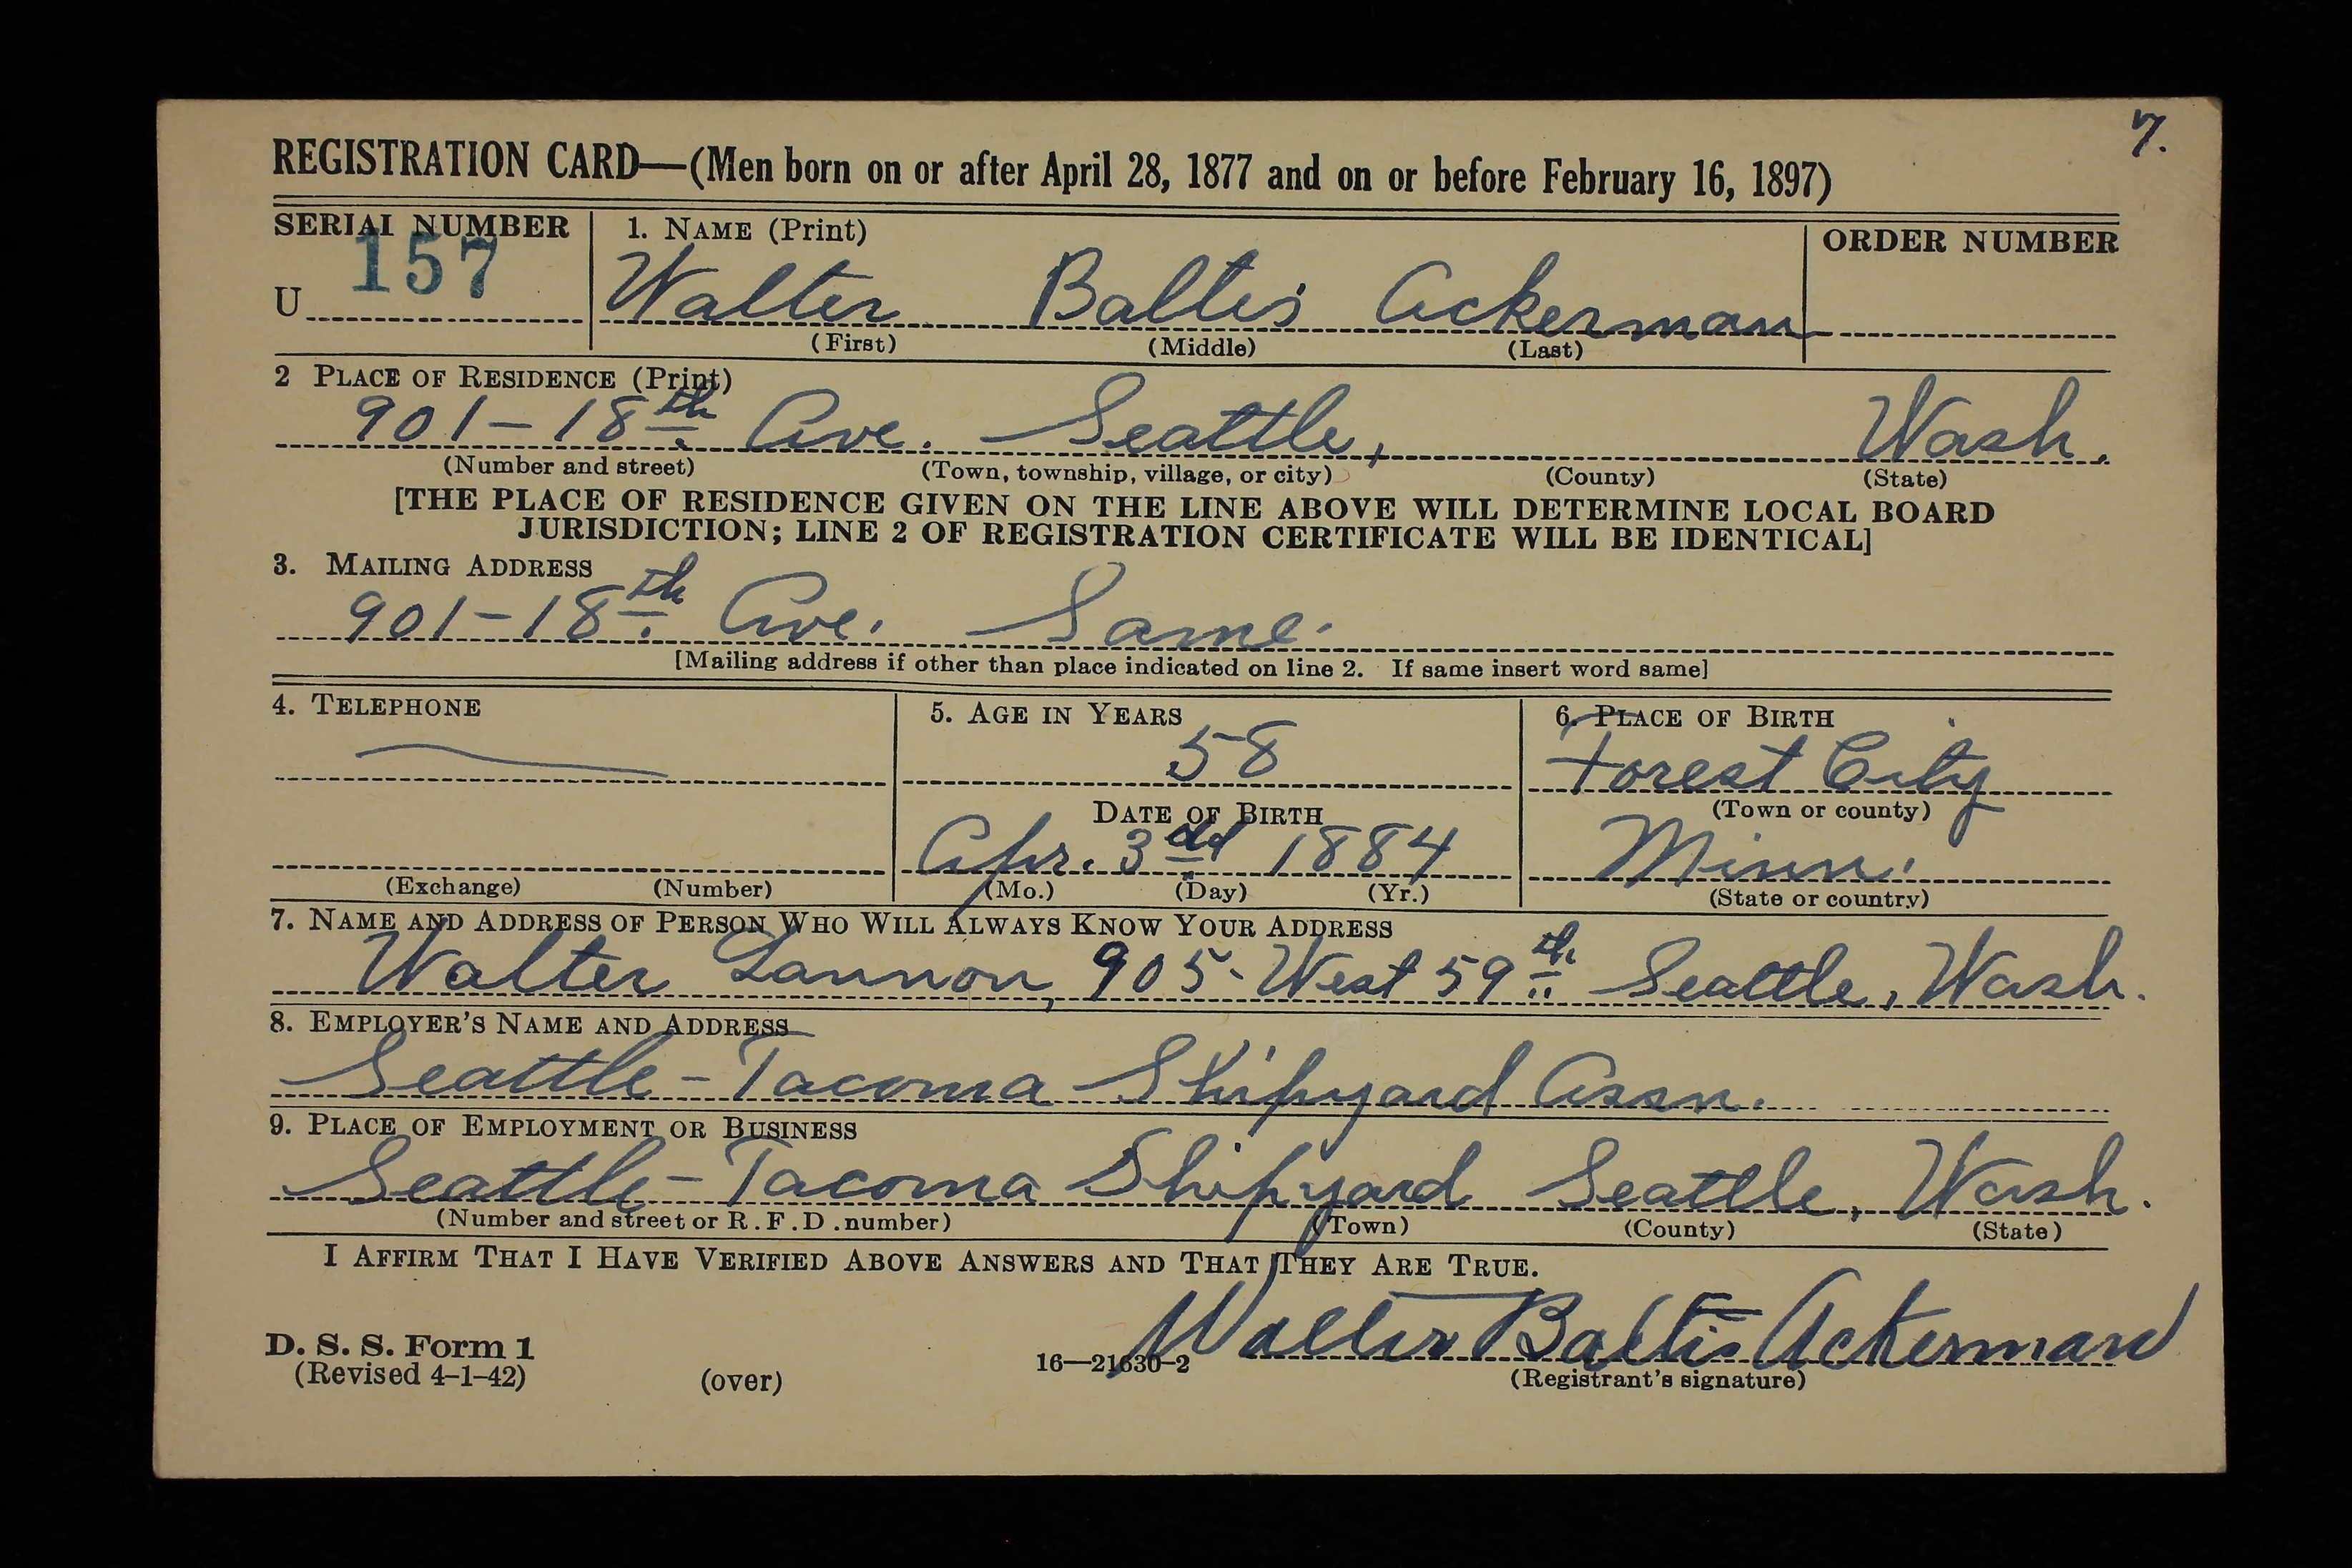 7.
REGISTRATION CARD—(Men born on or after April 28, 1877 and on or before February 16, 1897)
SERIAL NUMBER 1. NAME (Print) ORDER NUMBER
U 157 Walter Baltis Ackerman
(First) (Middle) (Last)
2 PLACE OF RESIDENCE (Print)
901-18th Ave. Seattle, Wash.
(Number and street) (Town, township, village, or city) (County) (State)
[THE PLACE OF RESIDENCE GIVEN ON THE LINE ABOVE WILL DETERMINE LOCAL BOARD
JURISDICTION; LINE 2 OF REGISTRATION CERTIFICATE WILL BE IDENTICAL]
3. MAILING ADDRESS
901-18th Ave. Same.
[Mailing address if other than place indicated on line 2. If same insert word same]
4. TELEPHONE 5. AGE IN YEARS 6. PLACE OF BIRTH
58 Forest City
DATE OF BIRTH (Town or county)
Apr. 3rd 1884 Minn.
(Exchange) (Number) (Mo.) (Day) (Yr.) (State or country)
7. NAME AND ADDRESS OF PERSON WHO WILL ALWAYS KNOW YOUR ADDRESS
Walter Lannon, 905-West 59th Seattle, Wash.
8. EMPLOYER'S NAME AND ADDRESS
Seattle-Tacoma Shipyard Assn.
9. PLACE OF EMPLOYMENT OR BUSINESS
Seattle-Tacoma Shipyard Seattle, Wash.
(Number and street or R. F. D. number) (Town) (County) (State)
I AFFIRM THAT I HAVE VERIFIED ABOVE ANSWERS AND THAT THEY ARE TRUE.
Walter Baltis Ackerman
D. S. S. Form 1
(Revised 4-1-42) (over) 16—21630-2 (Registrant's signature)